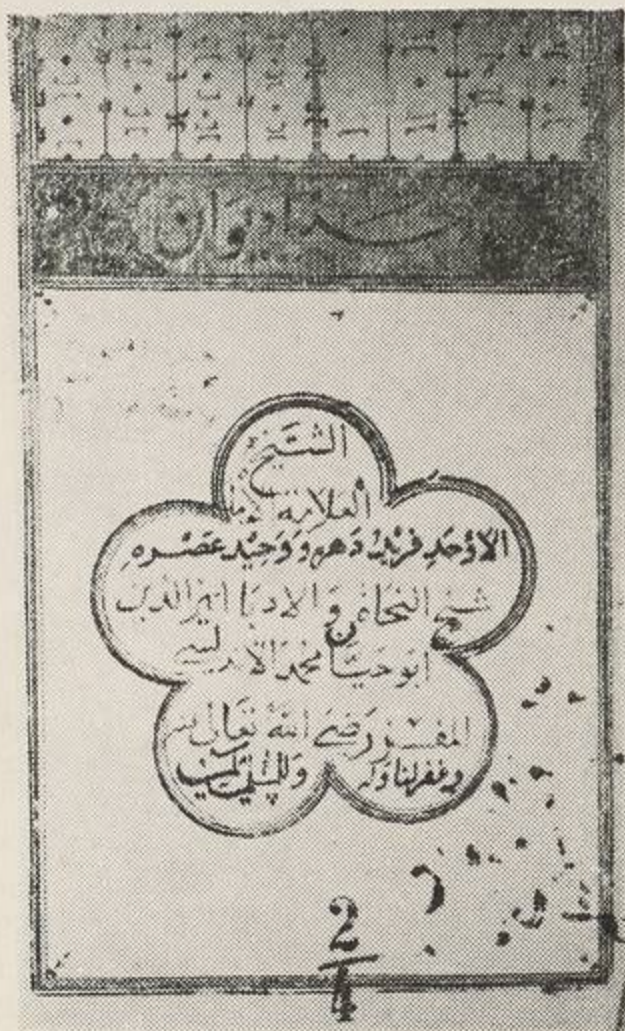 هذا ديوان
الشيخ
العلامة الامام
الاوحد فريد دهره ووحيد عصره
شيخ النحاة والادبا اثير الدين
ابو حيان محمد الاندلسي
المفسر رضي الله تعالى عنه
وغفر لنا وله وللمسلمين
2
4